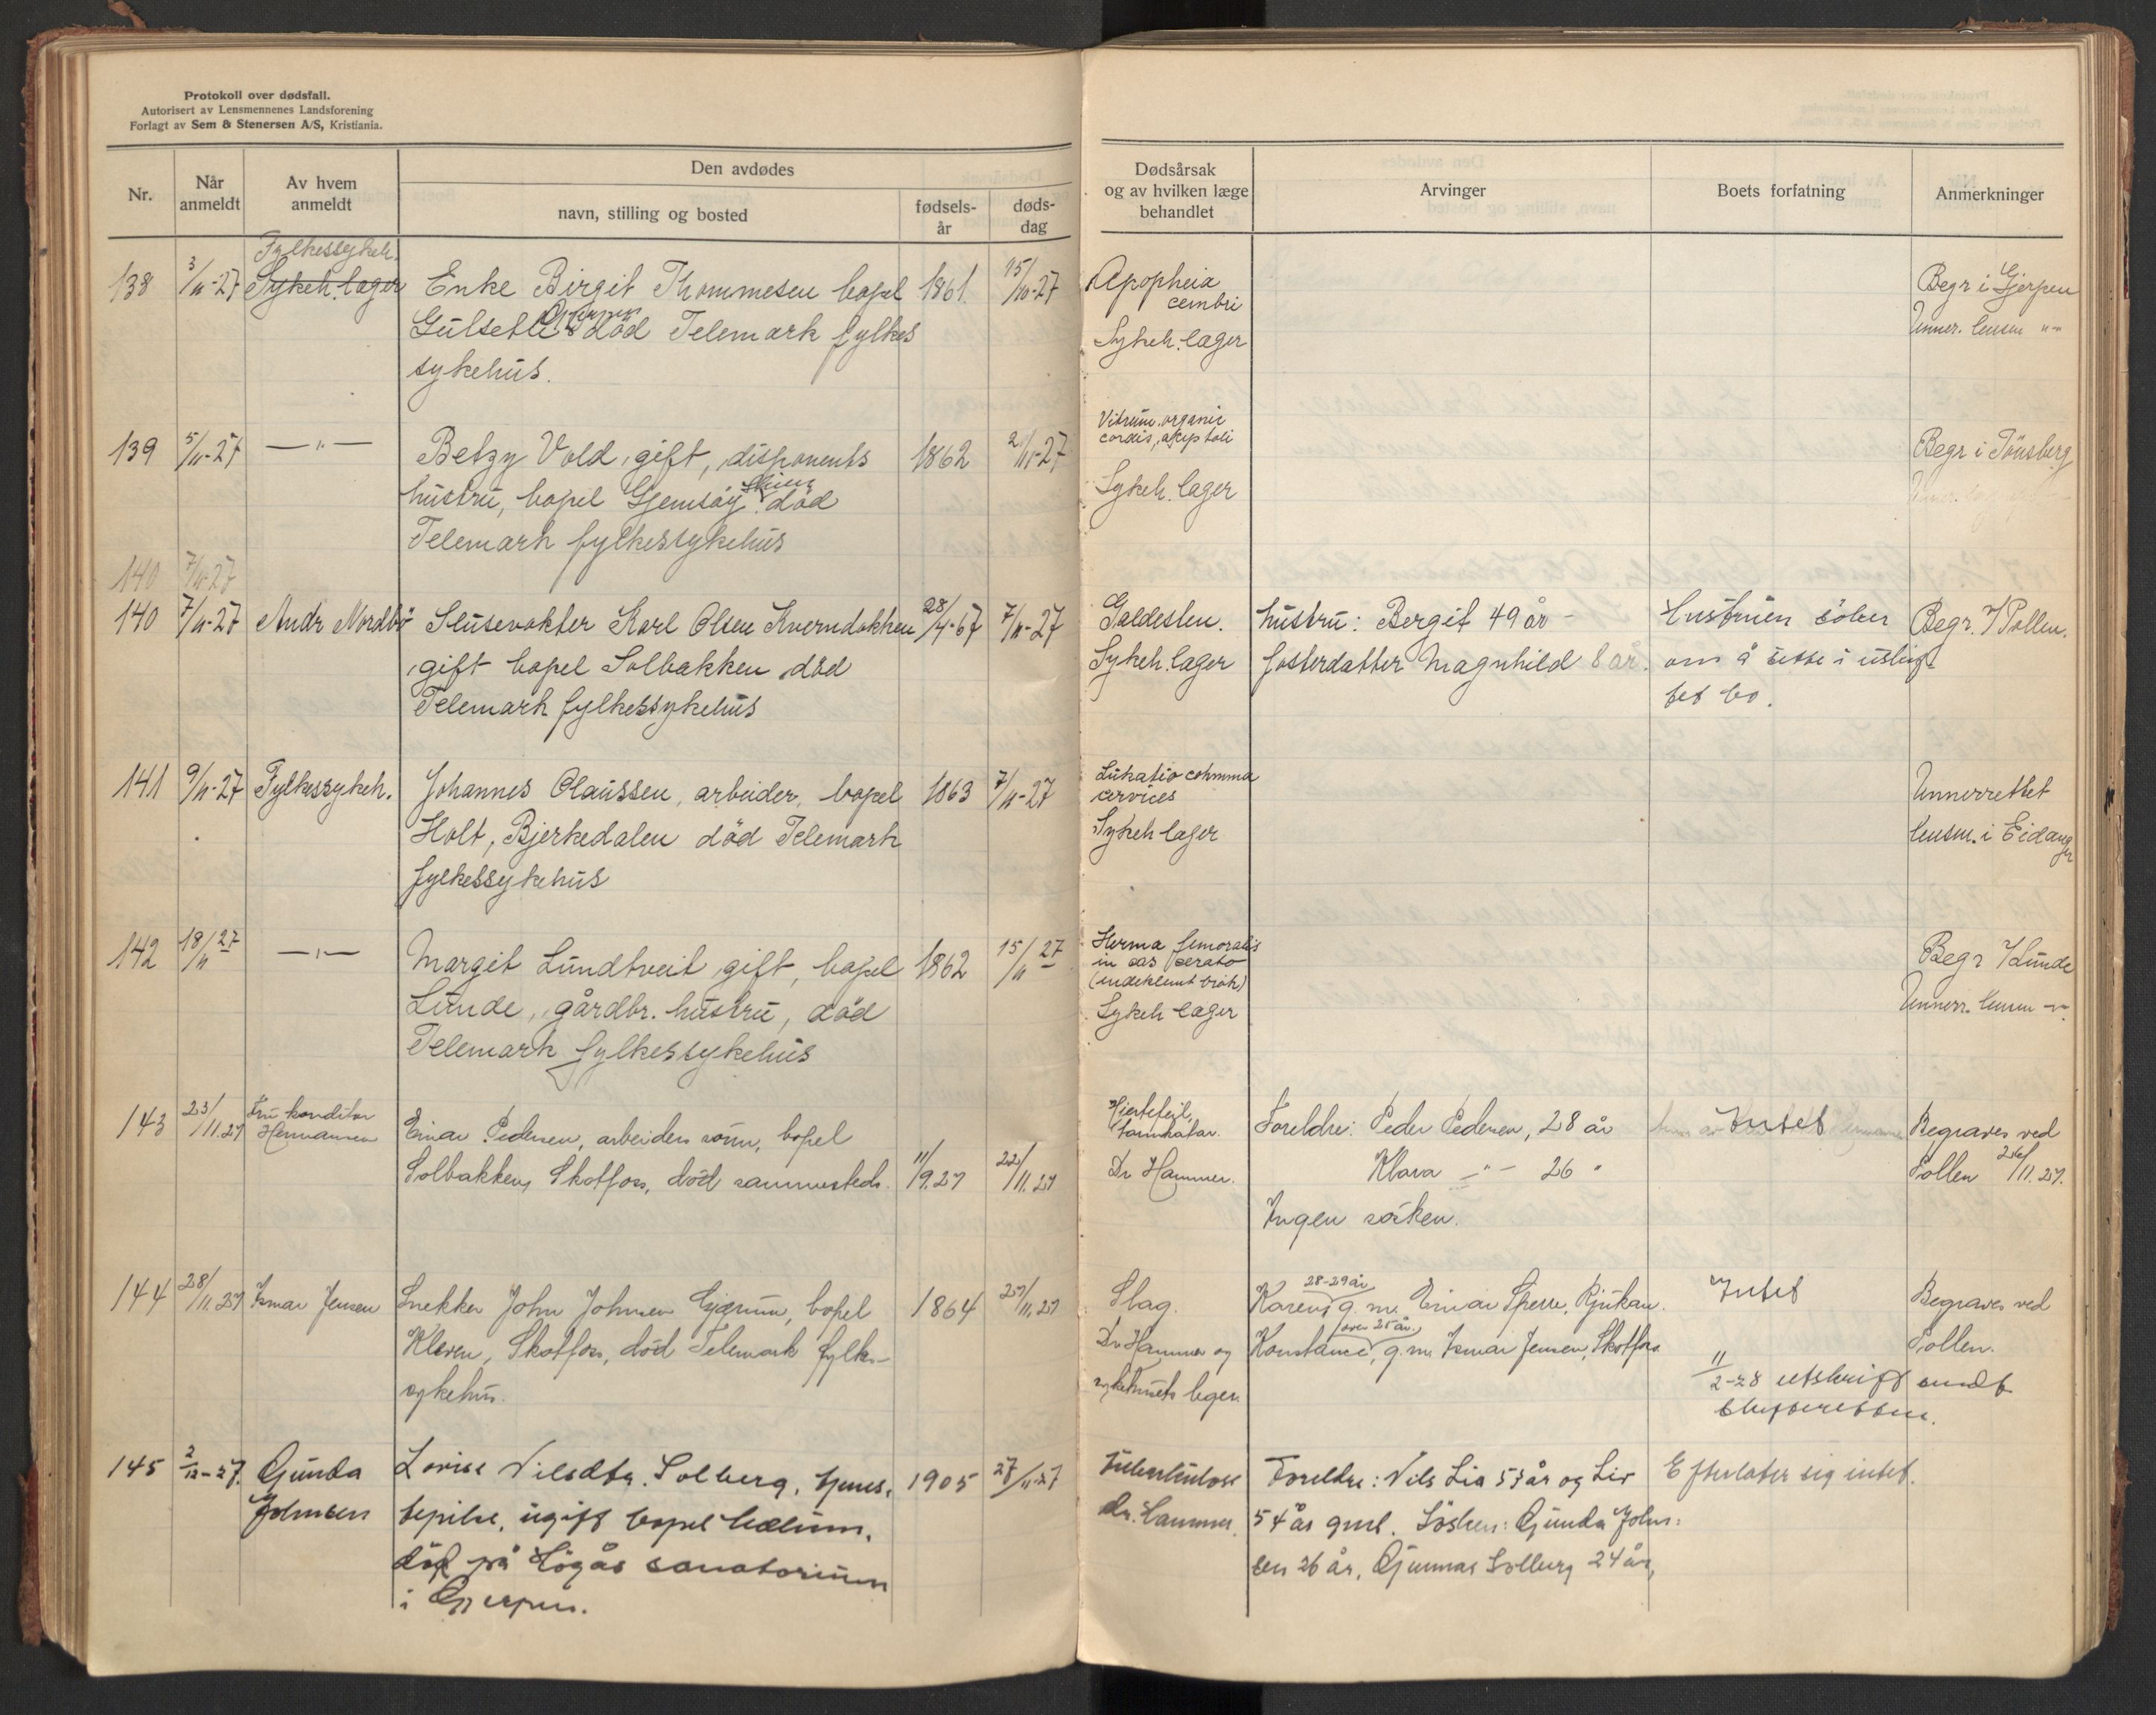 Protokoll over dødsfall.
Autorisert av Lensmennenes Landsforening
Forlagt av Sem & Stenersen A/S, Kristiania.
Nr.
Når anmeldt
Av hvem anmeldt
Den avdødes
navn, stilling og bosted
fødsels-år
døds-dag
Dødsårsak og av hvilken læge behandlet
Arvinger
Boets forfatning
Anmerkninger
138 3/11-27 Fylkessykeh. Sykeh. læger
Enke Birgit Thommesen bopel
Gulset Gjerpen død Telemark fylkes
sykehus.
1861. 15/10-27
Apopheia
cembri
Sykeh. læger
Begr i Gjerpen
Unner. lensm "-"
139 5/11-27 — " —
Betzy Vold, gift, disponents
hustru, bopel Gjemsøy Skien død
Telemark fylkessykehus
1862 2/11-27
Vitium organic
cordis,
Sykeh. læger
Begr i Tönsberg
140 7/11-27
140 7/11-27 Andr Mordbö
Slusevokter Karl Olsen Kverndokken
gift bopel Solbakken död
Telemark fylkessykehus
28/4-67 7/11-27
Galdesten.
Sykeh. læger
hustru: Bergit 49 år -
fosterdatter Magnhild 8 år.
Hustruen söker
om å sitte i uskif-
tet bo.
Begr. 7/ Pollen.
141 9/11-27 Fylkessykeh.
Johannes Olaussen, arbeider, bopel
Holt, Bjerkedalen död Telemark
fylkessykehus
1863 7/11-27
Lukatio columma
cervices
Sykeh læger
Unnerrettet
lensm. i Eidanger
142 18/11 27 — " —
Margit Lundtveit gift, bopel
Lunde, gårdbr. hustru, död
Telemark fylkessykehus
1862 15/11 27
Herma femoralis
in
(indeklemt brok)
Sykeh læger
Begr i Lunde
Unnerr. lensm -"-
143 23/11.27 Fru konditor
Hermansen
Einar Pedersen, arbeiders sönn, bopel
Solbakken, Skotfoss, död sammesteds.
11/9.27 22/11.27
Hjertefeil,
tarmkatar.
Dr Hammer.
Foreldre: Peder Pedersen, 28 år
Klara — " — 26 "
Ingen søsken.
Intet
Begraves ved
Pollen 26/11.27.
144 28/11.27 Ismar Jensen
Snekker John Johnsen Gjærum, bopel
Kleven, Skotfoss, död Telemark fylkes-
sykehus.
1864 27/11.27
Slag.
Dr Hammer og
sykehusets leger.
28-29 år
Karen, g. m. Einar Sperre, Rjukan.
over 25 år.
Konstance, g. m. Ismar Jensen, Skotfoss
Intet
11/2-28 utskrift sendt
skifteretten.
Begraves ved
Pollen.
145 2/12-27. Gunda
Johnsen
Lovise Nilsdtr. Solberg, tjenes-
tepike, ugift bopel Melum,
död på Högås sanatorium
i Gjerpen.
1905 27/11-27
Tuberkulose
dr. Hammer.
Foreldre: Nils Lia 53 år og Liv
54 år gml. Sösken: Gunda John-
sen 26 år, Gunnar Solberg 24 år,
Efterlater sig intet.